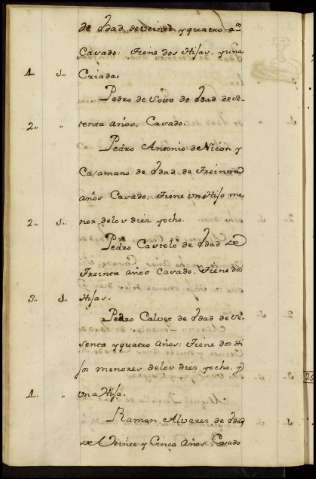 de Edad de Veinte y quatro a.s
Casado. Tiene dos Hijas, y una
1. s. Criada.
Pedro de Soto de Edad de se
2. tenta años, Casado.
Pedro Antonio de Nicon y
Casamano de Edad de Treinta
años Casado, Tiene un Hijo me
2. s. nor de los diez y ocho.
Pedro Castelo de Edad de
Treinta años Casado. Tiene dos
3. s. Hijas.
Pedro Calvo de Edad de se
senta y quatro años. Tiene dos Hi
jos menores de los diez y ocho, y
1. una Hija.
Ramon Alvarez de Edad
de Veinte y Cinco años, Casado